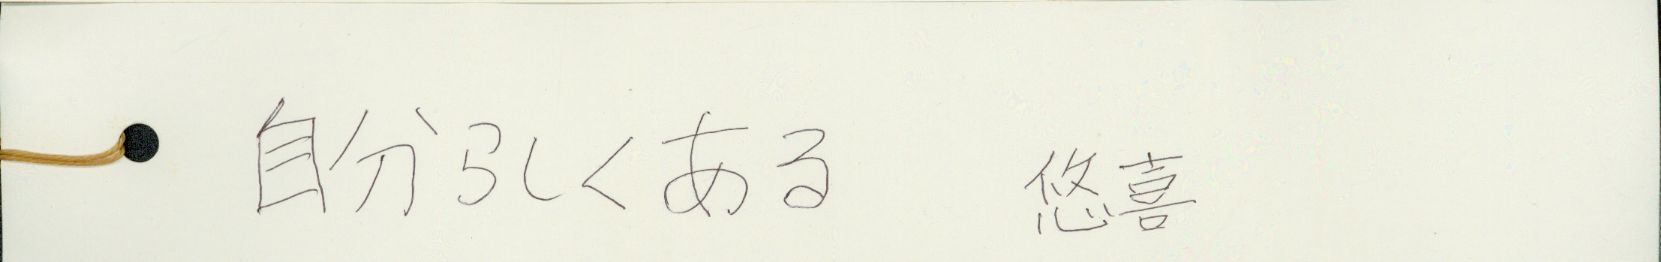 自分らしくある 悠喜